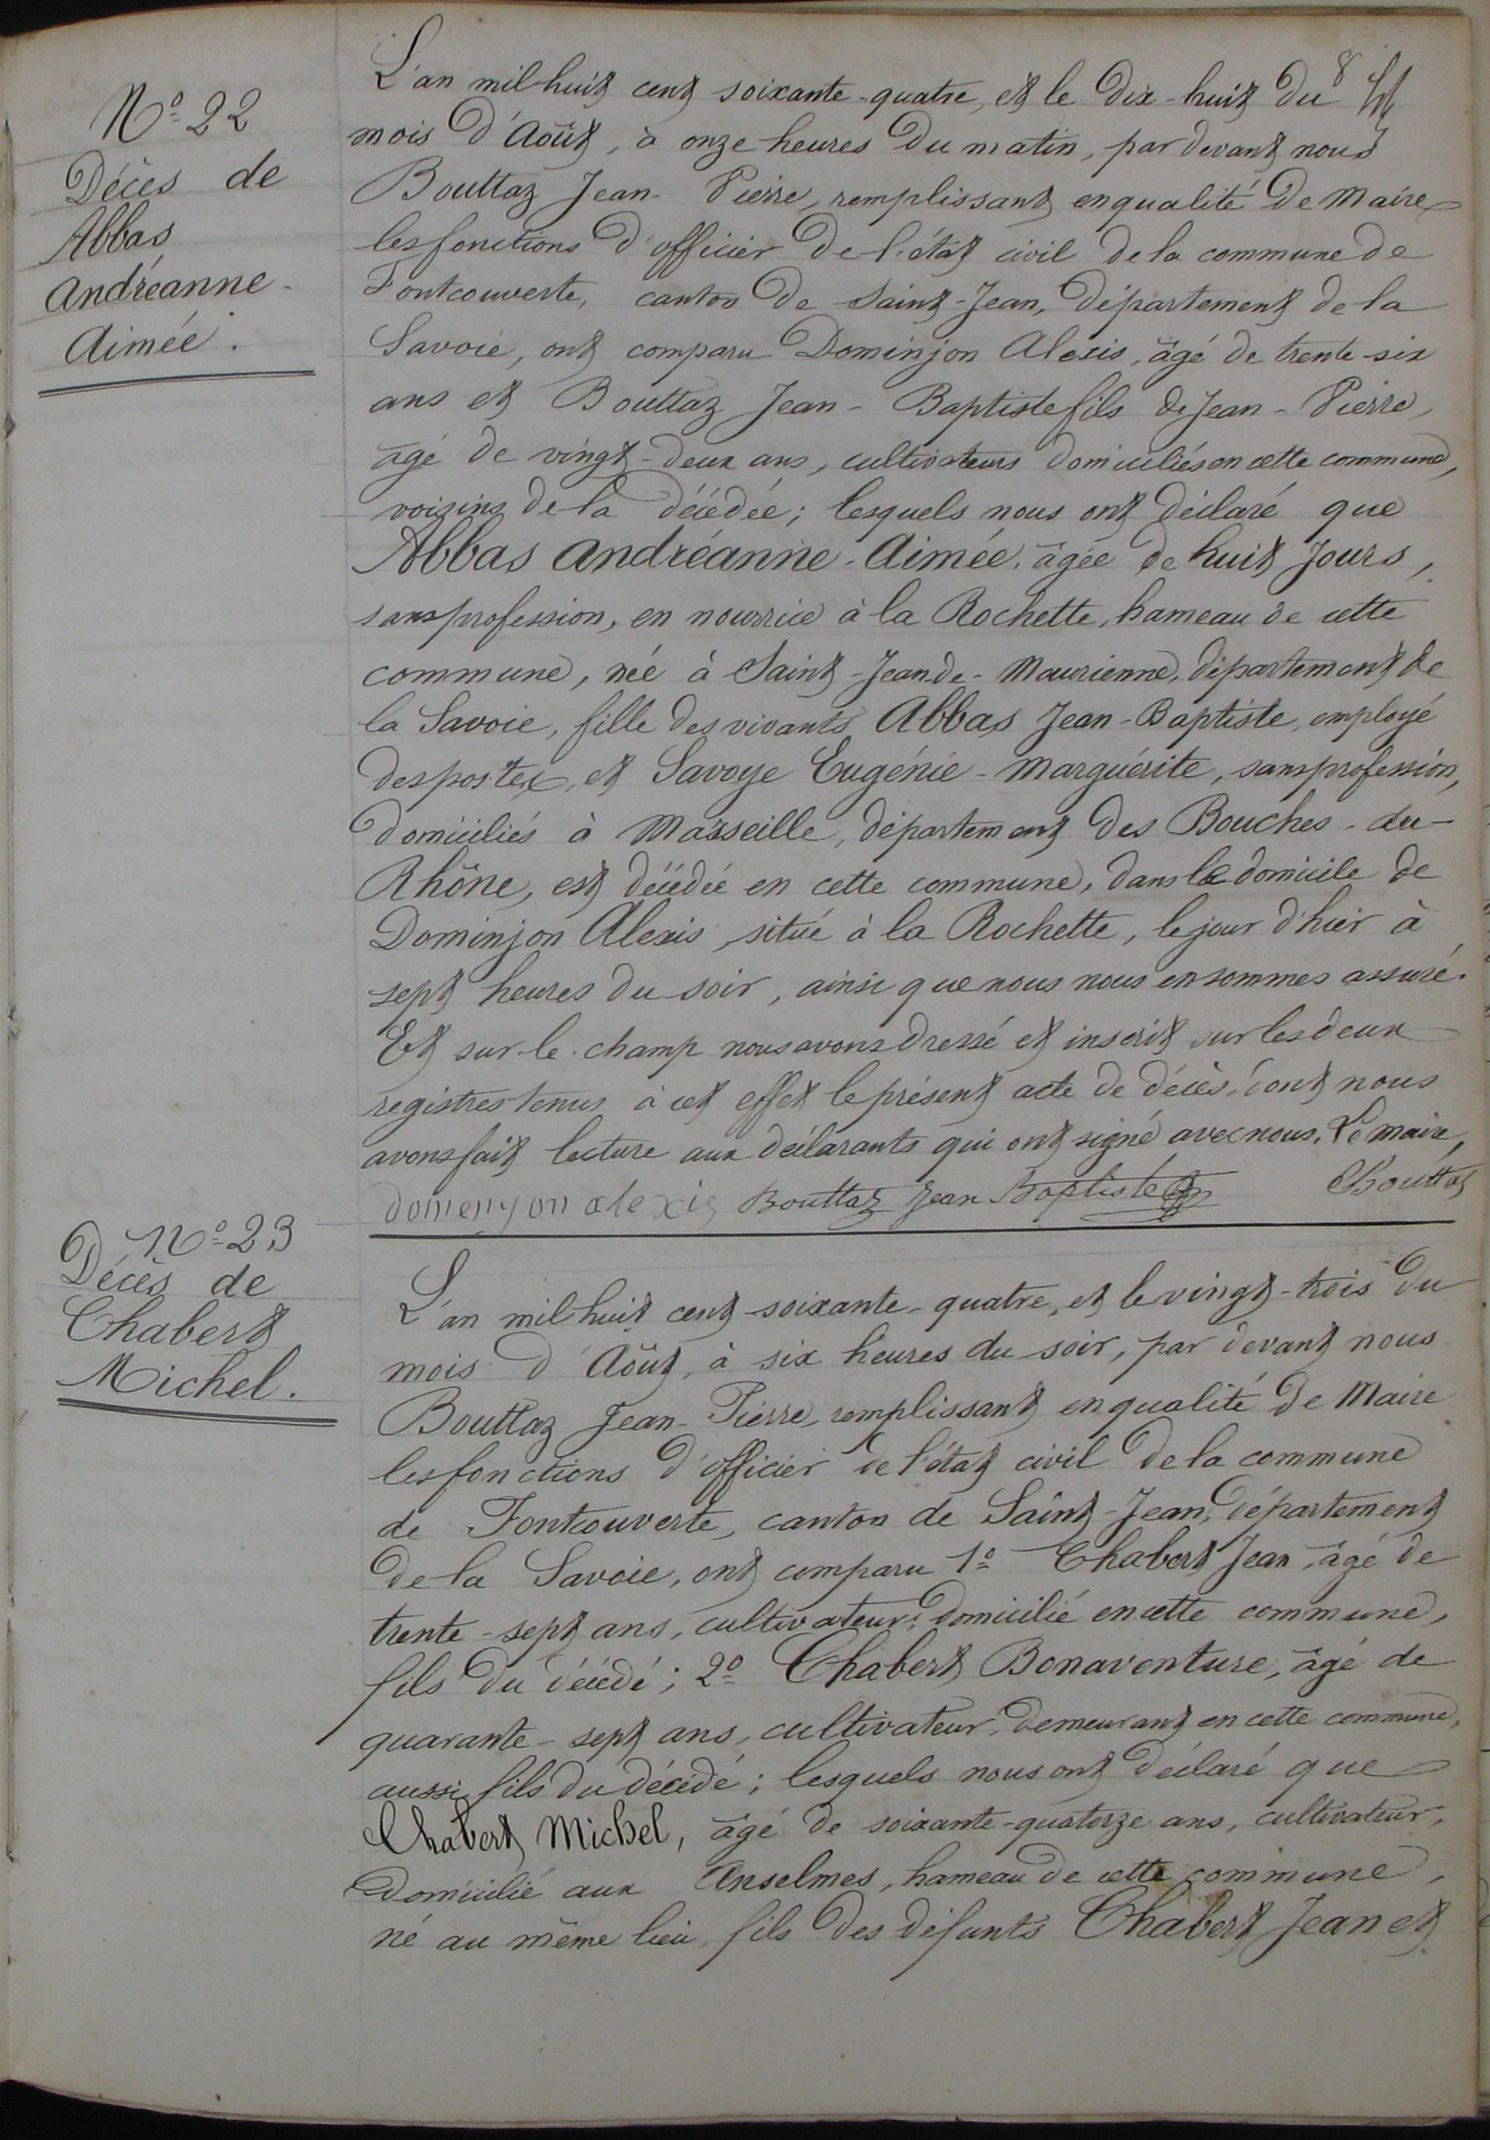 8
N° 22
Décès de
Abbas
Andréanne-
Aimée.
L'an mil huit cent soixante-quatre, et le dix-huit du
mois d'Août, à onze heures du matin, par devant nous
Bouttaz Jean-Pierre, remplissant en qualité de Maire
les fonctions d'officier de l'état civil de la commune de
Fontcouverte, canton de Saint-Jean, département de la
Savoie, ont comparu Dominjon Alexis, âgé de trente-six
ans et Bouttaz Jean-Baptiste fils de Jean-Pierre,
âgé de vingt-deux ans, cultivateurs domiciliés en cette commune,
voisins de la décédée; lesquels nous ont déclaré que
Abbas Andréanne-Aimée, âgée de huit jours,
sans profession, en nourrice à la Rochette, hameau de cette
commune, née à Saint-Jean-de-Maurienne, département de
la Savoie, fille des vivants Abbas Jean-Baptiste, employé
des postes, et Savoye Eugénie-Marguérite, sans profession,
domiciliés à Marseille, département des Bouches-du-
Rhône, est décédée en cette commune, dans le domicile de
Dominjon Alexis, situé à la Rochette, le jour d'hier à
sept heures du soir, ainsi que nous nous en sommes assuré.
Et sur-le-champ nous avons dressé et inscrit sur les deux
registres tenus à cet effet le présent acte de décès, dont nous
avons fait lecture aux déclarants qui ont signé avec nous. Le maire,
domenjon alexis Bouttaz Jean Baptiste Bouttaz
N° 23
Décès de
Chabert
Michel.
L'an mil huit cent soixante-quatre, et le vingt-trois du
mois d'Août, à six heures du soir, par devant nous
Bouttaz Jean-Pierre, remplissant en qualité de Maire
les fonctions d'officier de l'état civil de la commune
de Fontcouverte, canton de Saint-Jean, département
de la Savoie, ont comparu 1° Chabert Jean, âgé de
trente-sept ans, cultivateur, domicilié en cette commune,
fils du décédé; 2° Chabert Bonaventure, âgé de
quarante-sept ans, cultivateur, demeurant en cette commune,
aussi fils du décédé; lesquels nous ont déclaré que
Chabert Michel, âgé de soixante-quatorze ans, cultivateur,
domicilié aux Anselmes, hameau de cette commune,
né au même lieu, fils des défunts Chabert Jean et